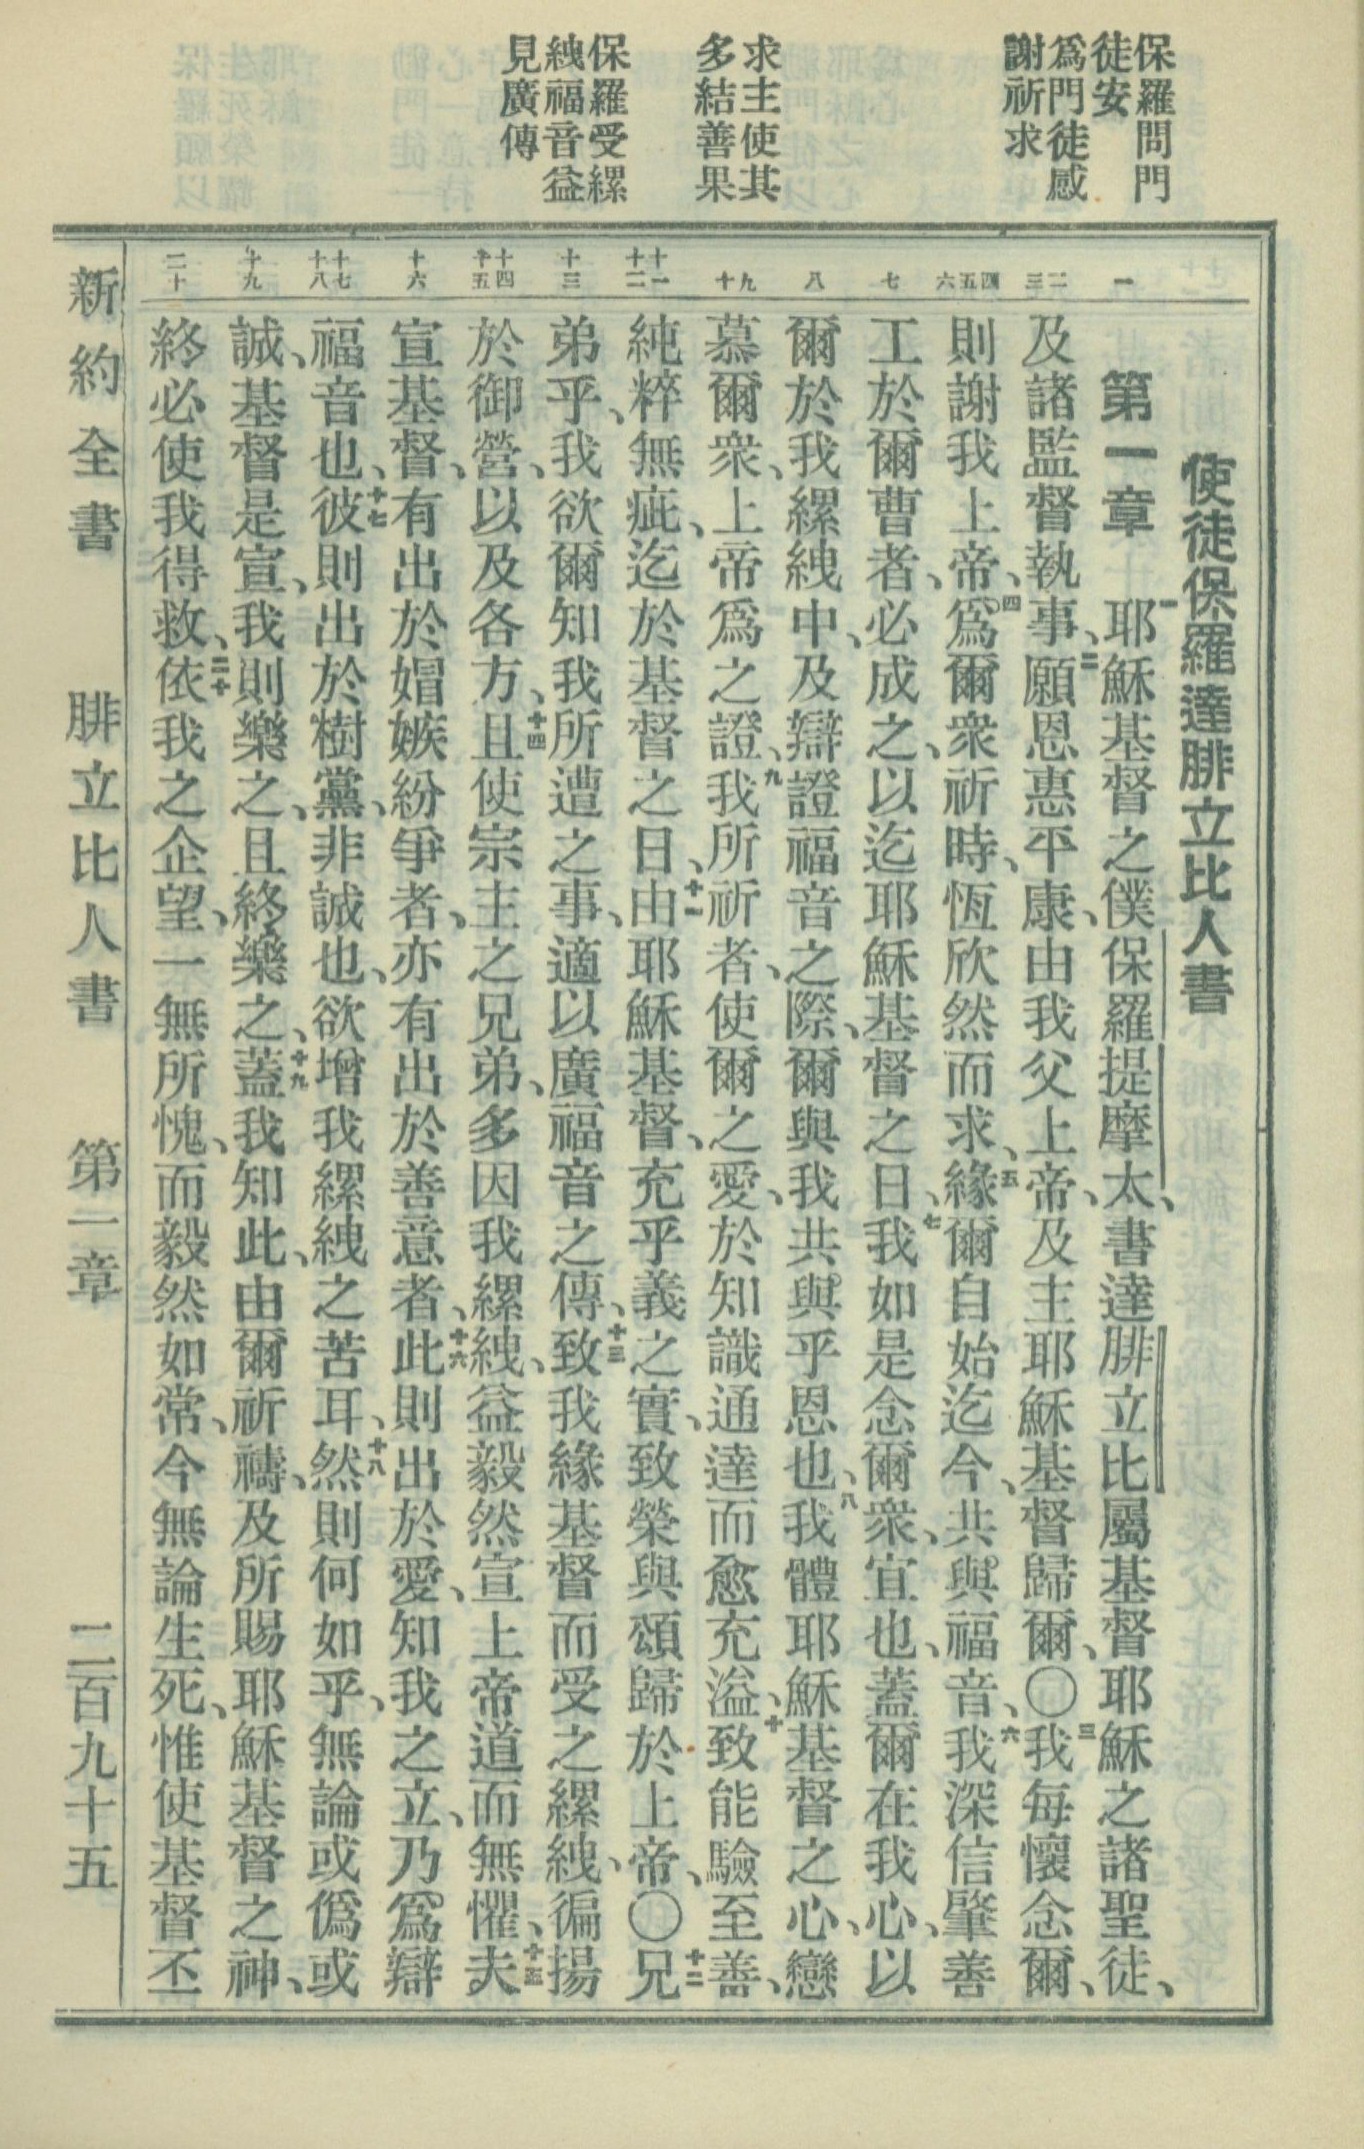 保羅問門
徒安
爲門徒感
謝祈求
求主使其
多結善果
保羅受縲
絏福音益
見廣傳
一
二三
四五六
七
八
九十
十一十二
十三
十四十五
十六
十七十八
十九
二十
使徒保羅達腓立比人書
第一章 一耶穌基督之僕保羅提摩太、書達腓立比屬基督耶穌之諸聖徒、
及諸監督執事、二願恩惠平康、由我父上帝、及主耶穌基督歸爾、〇三我每懷念爾、
則謝我上帝、四爲爾衆祈時、恆欣然而求、五緣爾自始迄今、共與福音、六我深信肇善
工於爾曹者、必成之、以迄耶穌基督之日、七我如是念爾衆、宜也、蓋爾在我心、以
爾於我縲絏中、及辯證福音之際、爾與我共與乎恩也、八我體耶穌基督之心、戀
慕爾衆、上帝爲之證、九我所祈者、使爾之愛、於知識通達而愈充溢、十致能驗至善、
純粹無疵、迄於基督之日、十一由耶穌基督、充乎義之實、致榮與頌歸於上帝、〇十二兄
弟乎、我欲爾知我所遭之事、適以廣福音之傳、十三致我緣基督而受之縲絏、徧揚
於御營、以及各方、十四且使宗主之兄弟、多因我縲絏、益毅然宣上帝道而無懼、十五夫
宣基督、有出於媢嫉紛爭者、亦有出於善意者、十六此則出於愛、知我之立、乃爲辯
福音也、十七彼則出於樹黨、非誠也、欲增我縲絏之苦耳、十八然則何如乎、無論或僞或
誠、基督是宣、我則樂之、且終樂之、十九蓋我知此、由爾祈禱、及所賜耶穌基督之神、
終必使我得救、二十依我之企望、一無所愧、而毅然如常、今無論生死、惟使基督丕
新約全書 腓立比人書 第一章 二百九十五